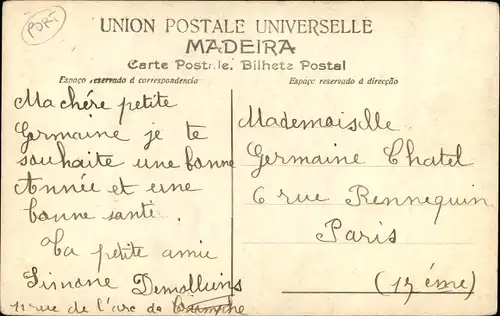 PORT
UNION POSTALE UNIVERSELLE
MADEIRA
Carte Postale. Bilhete Postal
Espaço reservado á correspondencia
Espaço reservado á direcção
Ma chére petite
Germaine je te
souhaite une bonne
Année et une
bonne santé.
Ta petite amie
Simone Demollins
11 rue de l'arc de Triomphe
Mademoiselle
Germaine Chatel
6 rue Rennequin
Paris
(17 éme)